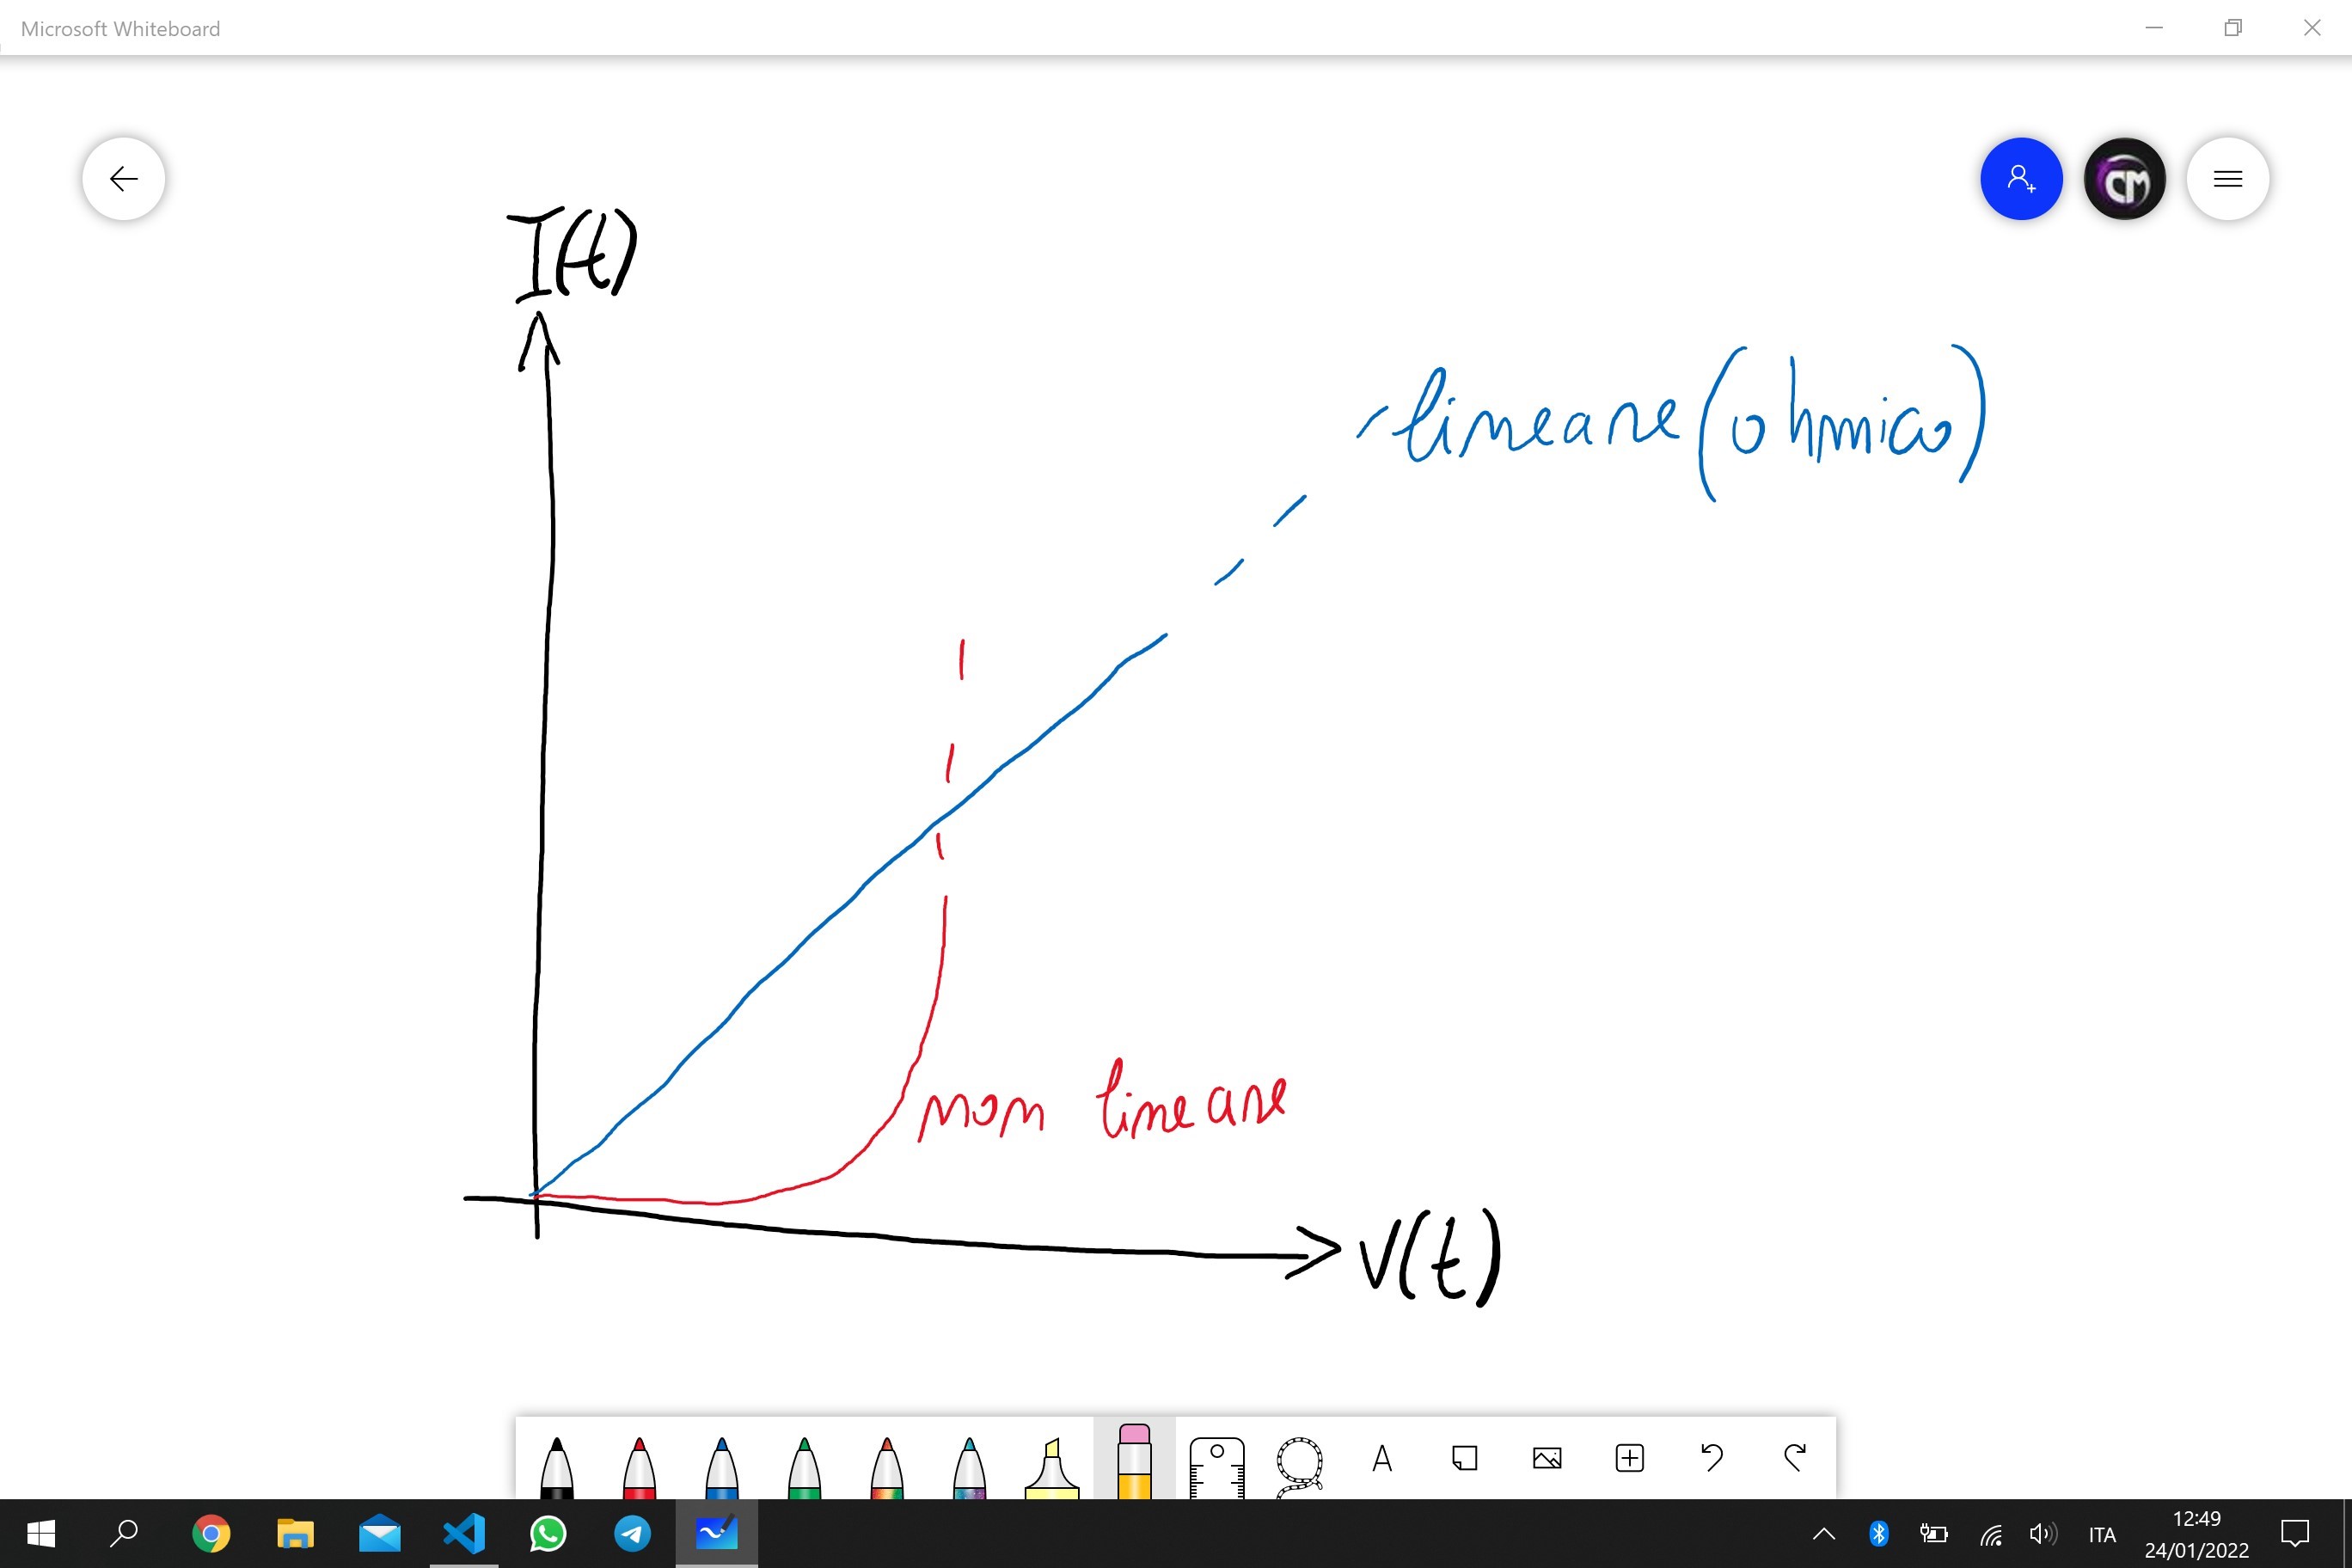 Microsoft Whiteboard
CM
I(t)
lineare (ohmico)
non lineare
V(t)
A
ITA
12:49
24/01/2022